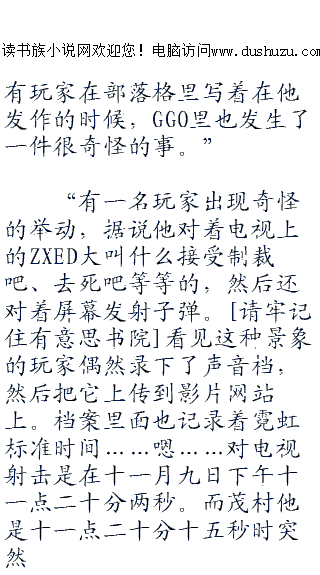 读书族小说网欢迎您！电脑访问www.dushuzu.com
有玩家在部落格里写着在他
发作的时候，GGO里也发生了
一件很奇怪的事。”
“有一名玩家出现奇怪
的举动，据说他对着电视上
的ZXED大叫什么接受制裁
吧、去死吧等等的，然后还
对着屏幕发射子弹。[请牢记
住有意思书院]看见这种景象
的玩家偶然录下了声音档，
然后把它上传到影片网站
上。档案里面也记录着霓虹
标准时间……嗯……对电视
射击是在十一月九日下午十
一点二十分两秒。而茂村他
是十一点二十分十五秒时突
然